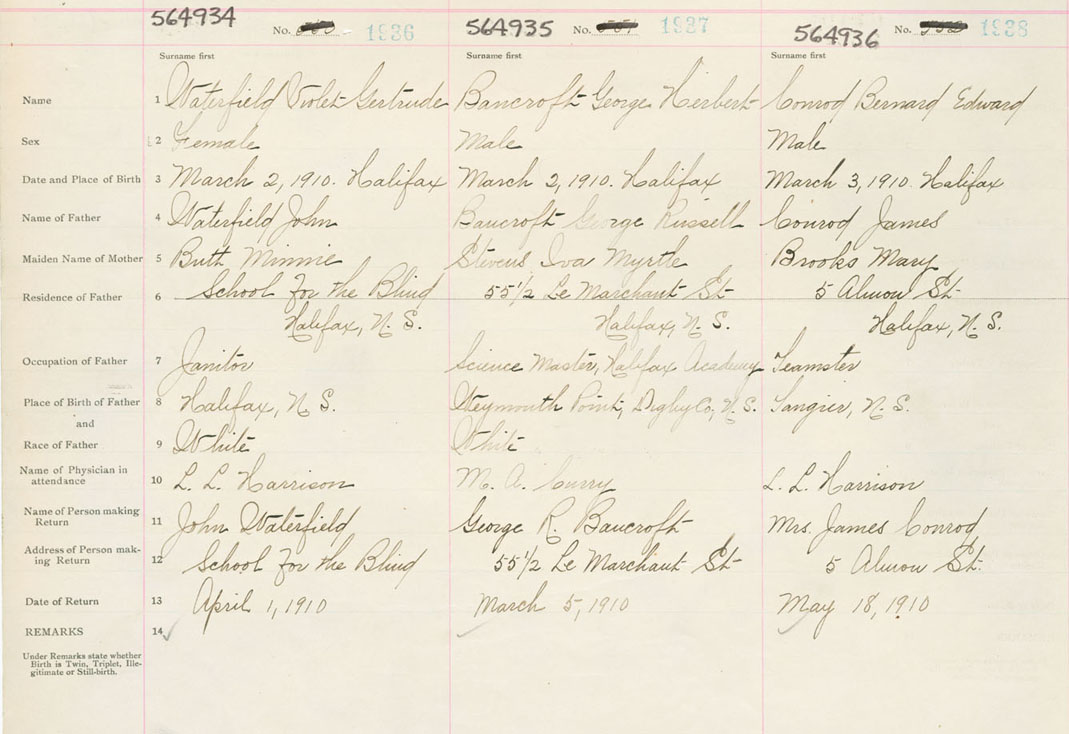 564934 No. 1936 564935 No. 1937 564936 No. 1938
Surname first Surname first Surname first
Name 1 Waterfield Violet Gertrude Bancroft George Herbert Conrod Bernard Edward
Sex 2 Female Male Male
Date and Place of Birth 3 March 2, 1910. Halifax March 2, 1910. Halifax March 3, 1910. Halifax
Name of Father 4 Waterfield John Bancroft George Russell Conrod James
Maiden Name of Mother 5 Butt Minnie Stevens Iva Myrtle Brooks Mary
Residence of Father 6 School for the Blind 55 1/2 Le Marchant St 5 Almon St.
Halifax, N. S. Halifax, N. S. Halifax, N. S.
Occupation of Father 7 Janitor Science Master, Halifax Academy Teamster
Place of Birth of Father 8 Halifax, N. S. Weymouth Point, Digby Co, N. S. Tangier, N. S.
and
Race of Father 9 White White
Name of Physician in
attendance 10 L. L. Harrison M. A. Curry L. L. Harrison
Name of Person making
Return 11 John Waterfield George R. Bancroft Mrs. James Conrod
Address of Person mak-
ing Return 12 School for the Blind 55 1/2 Le Marchant St 5 Almon St.
Date of Return 13 April 1, 1910 March 5, 1910 May 18, 1910
REMARKS 14
Under Remarks state whether
Birth is Twin, Triplet, Ille-
gitimate or Still-birth.